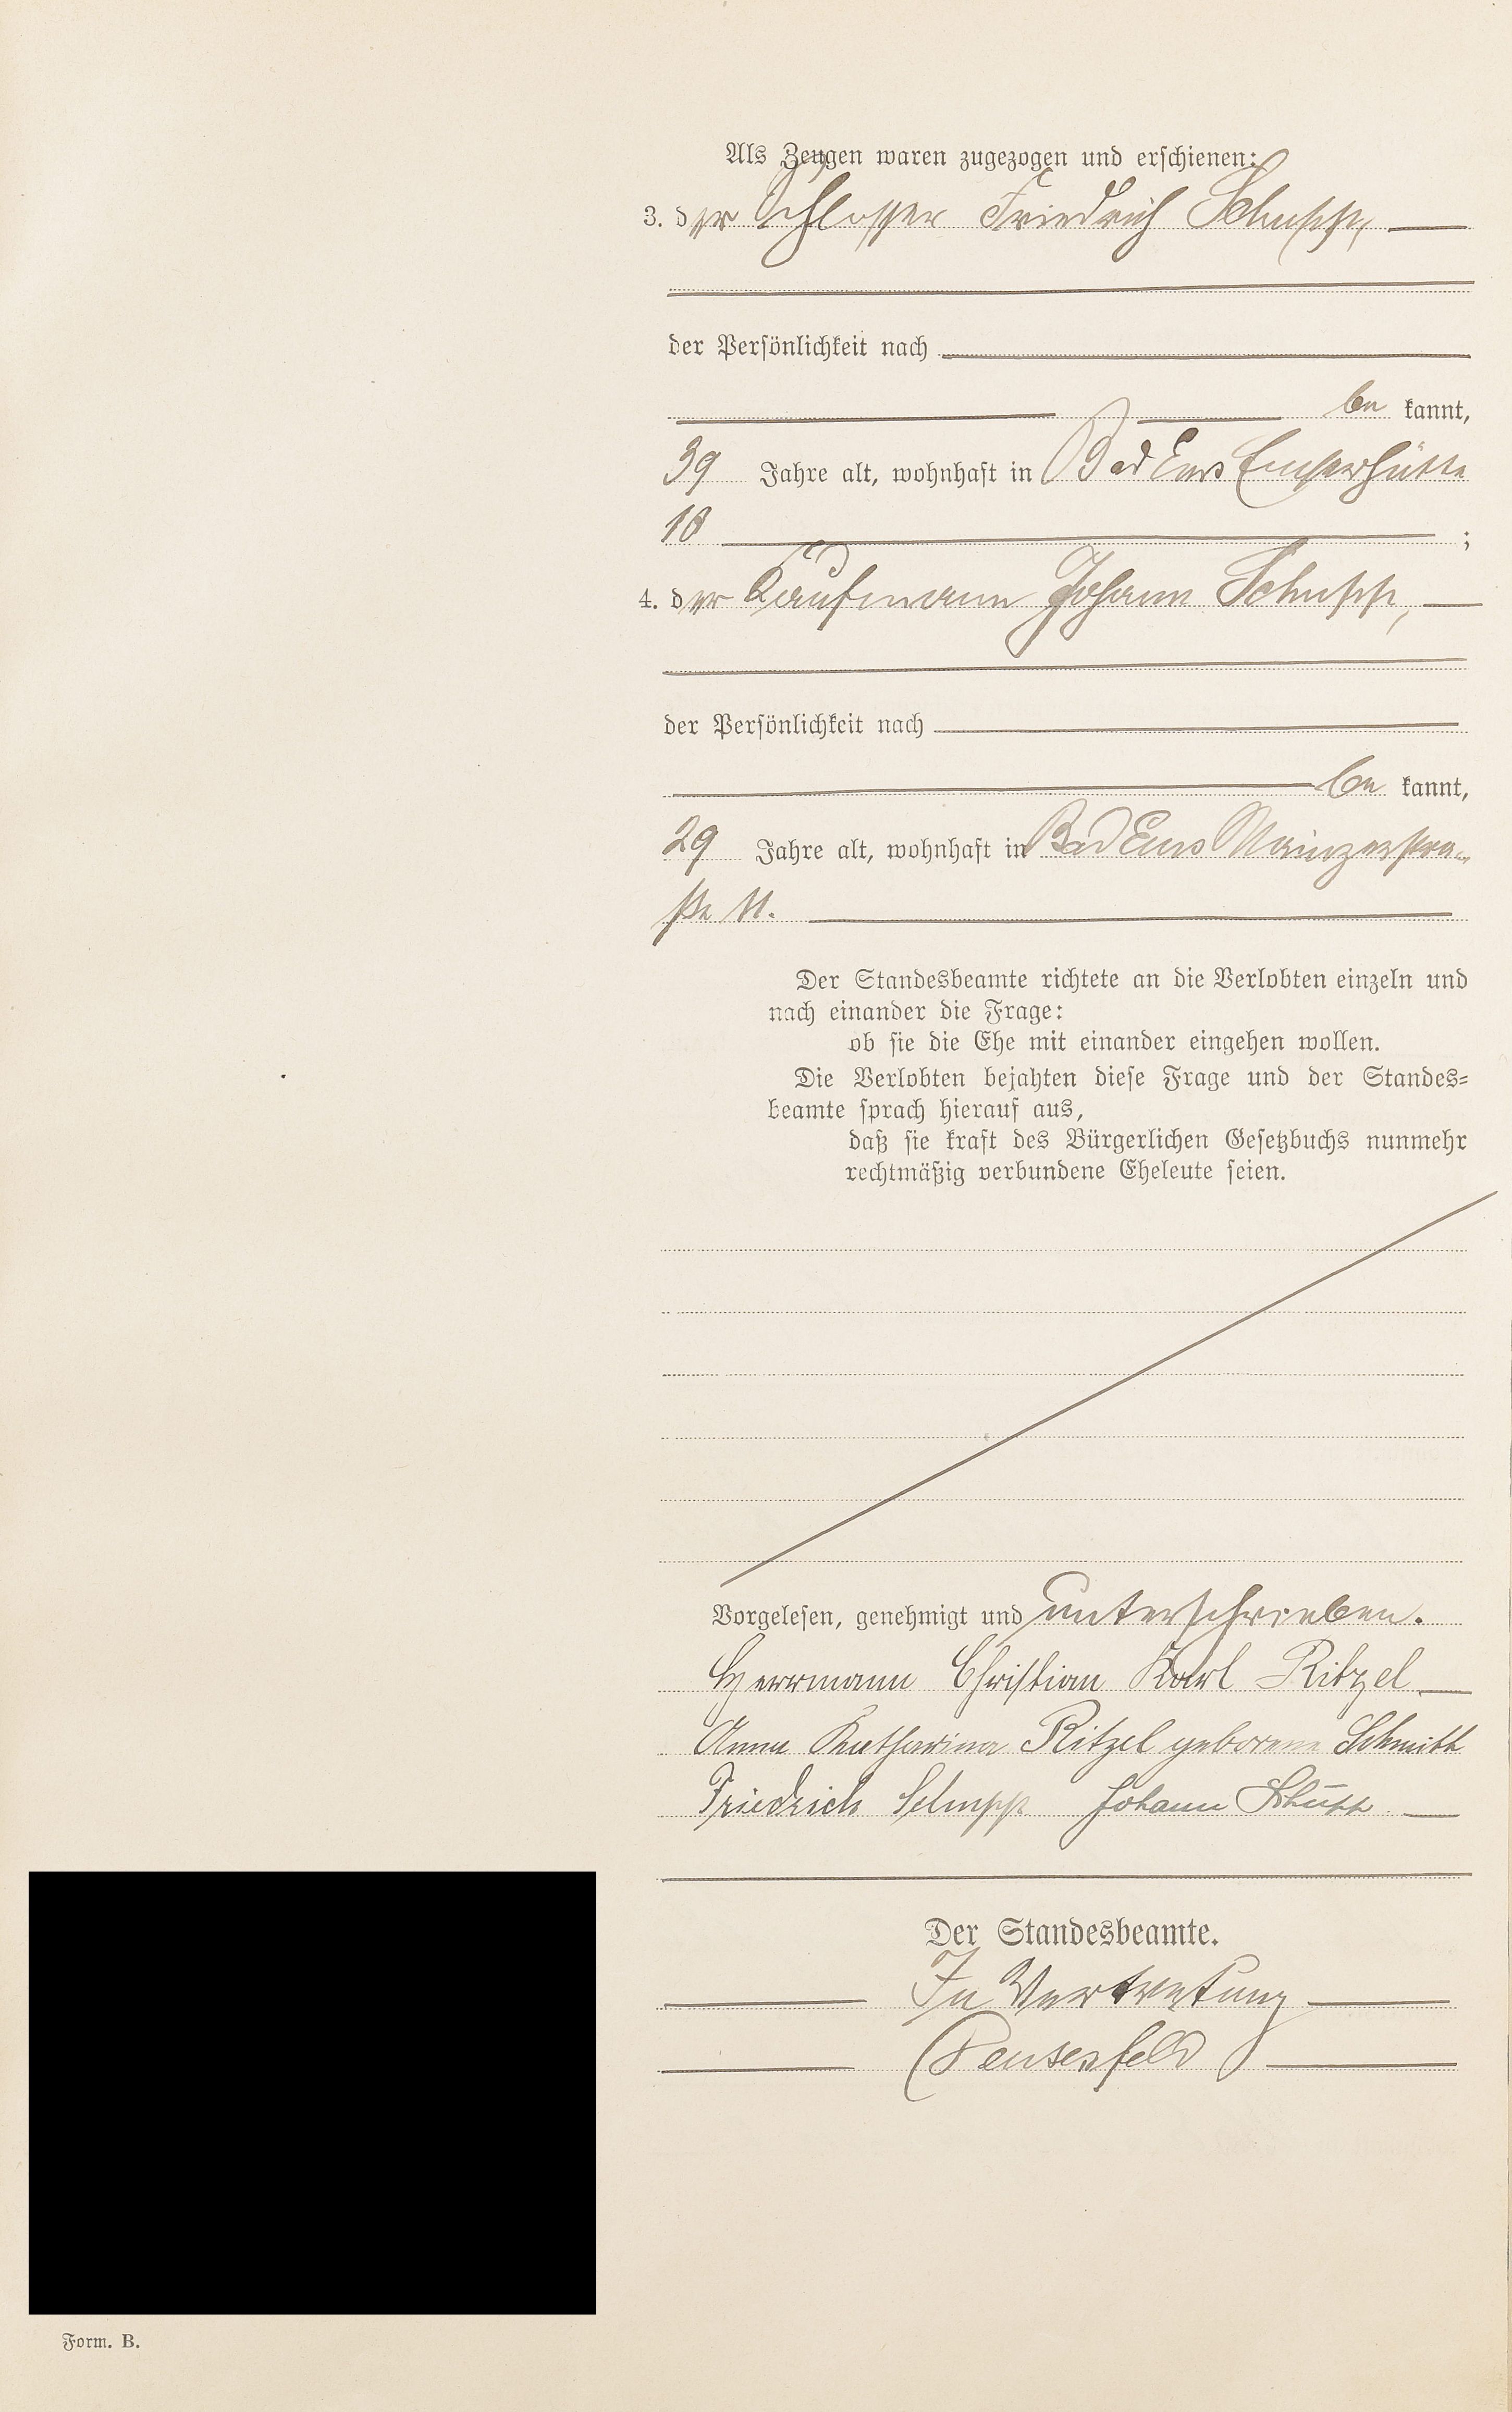 Als Zeugen waren zugezogen und erschienen:
3. der Schlosser Friedrich Schupp,
der Persönlichkeit nach
be kannt,
39 Jahre alt, wohnhaft in Bad Ems Emserhütte
18 ;
4. der Kaufmann Johann Schupp,
der Persönlichkeit nach
be kannt,
29 Jahre alt, wohnhaft in Bad Ems Mainzerstra-
ße 11.
Der Standesbeamte richtete an die Verlobten einzeln und
nach einander die Frage:
ob sie die Ehe mit einander eingehen wollen.
Die Verlobten bejahten diese Frage und der Standes-
beamte sprach hierauf aus,
daß sie kraft des Bürgerlichen Gesetzbuchs nunmehr
rechtmäßig verbundene Eheleute seien.
Vorgelesen, genehmigt und unterschrieben.
Herrmann Christian Karl Ritzel
Anna Katharina Ritzel geborene Schmitt
Friedrich Schupp Johann Schupp
Der Standesbeamte.
In Vertretung
Form. B.